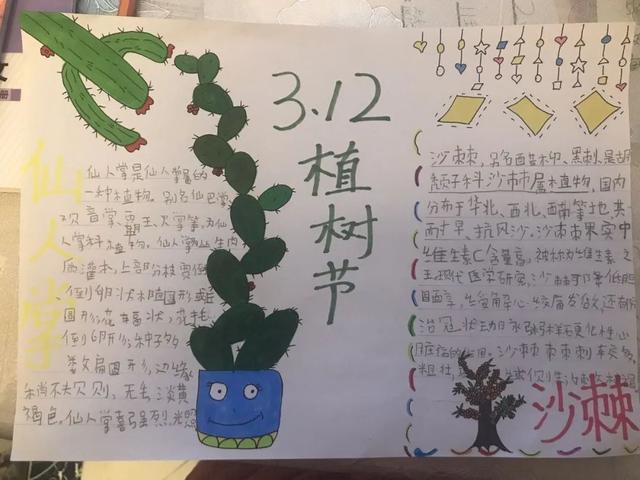 3.12
植树节
仙人掌
仙人掌是仙人掌属的
一种植物。别名仙巴掌、
观音掌、霸王、火掌等,为仙
人掌科植物。仙人掌丛生肉
质灌木,上部分枝宽倒
、倒卵状椭圆形或近
圆形,花
倒卵形,种子多
数扁圆形,边缘
稍不规则,无毛,淡黄
褐色。仙人掌喜强烈光照
沙棘,别名醋柳、黑刺,是胡
颓子科沙棘属植物,国内
分布于华北、西北、西南等地。其
耐旱、抗风沙,沙棘果实中
维生素C含量高,被称为维生素C之
王。现代医学研究,沙棘可降低胆
固醇,绞痛发作,还有防
治冠状动脉粥样硬化性心
脏病的作用。沙棘
粗壮
沙棘